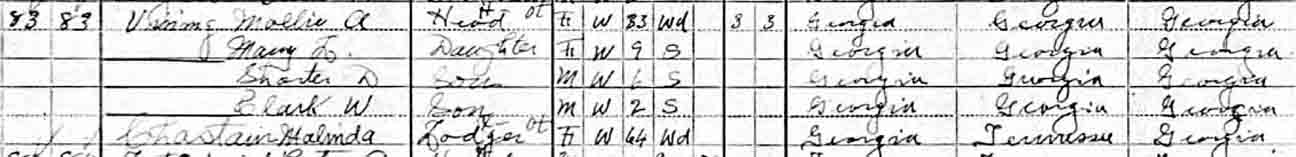 83 83 Vining Mollie A Head ot F W 33 Wd 3 3 Georgia Georgia Georgia
Mary L. Daughter F W 9 S Georgia Georgia Georgia
Shorter D Son M W 6 S Georgia Georgia Georgia
Clark W Son M W 2 S Georgia Georgia Georgia
Chastain Malinda Lodger ot F W 64 Wd Georgia Tennessee Georgia